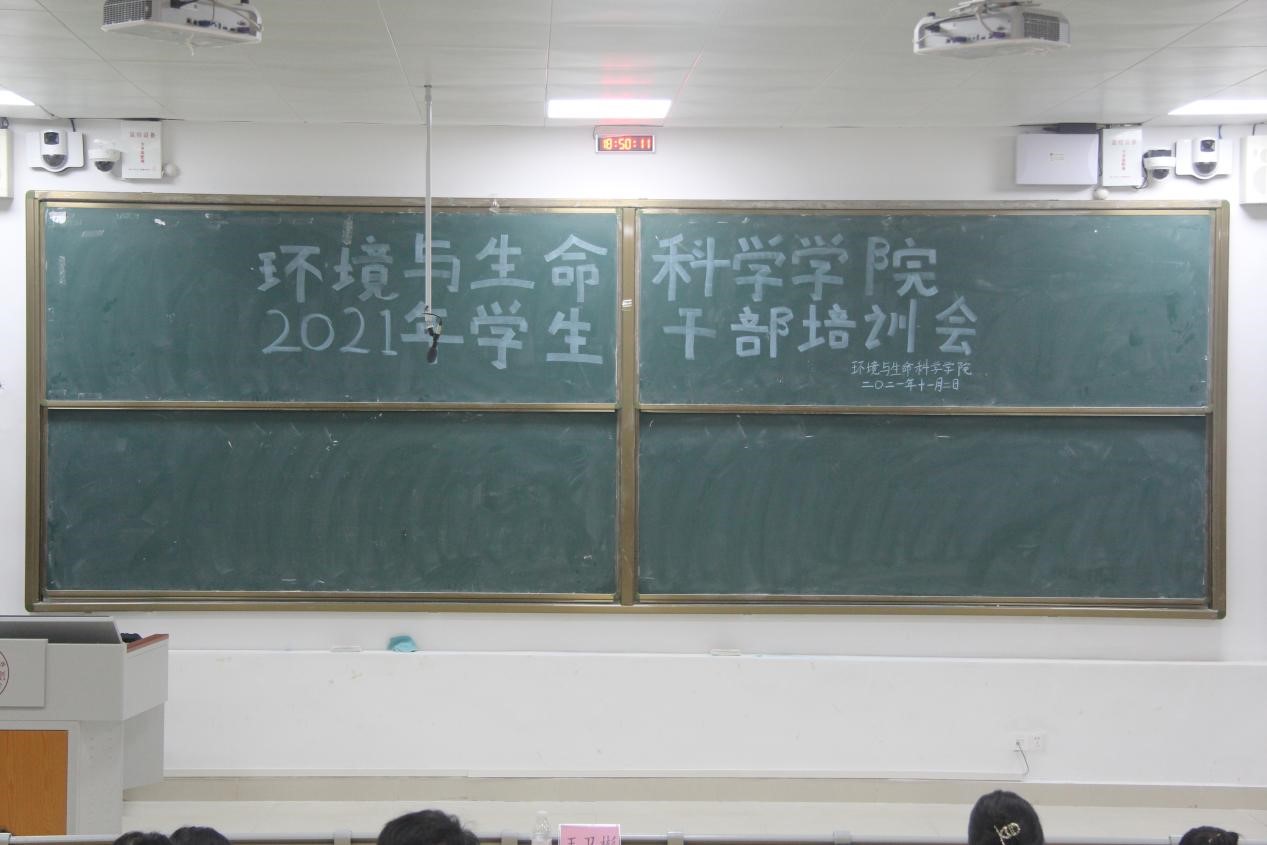 18:50:11
环境与生命科学学院
2021年学生干部培训会
环境与生命科学学院
二〇二一年十一月二日